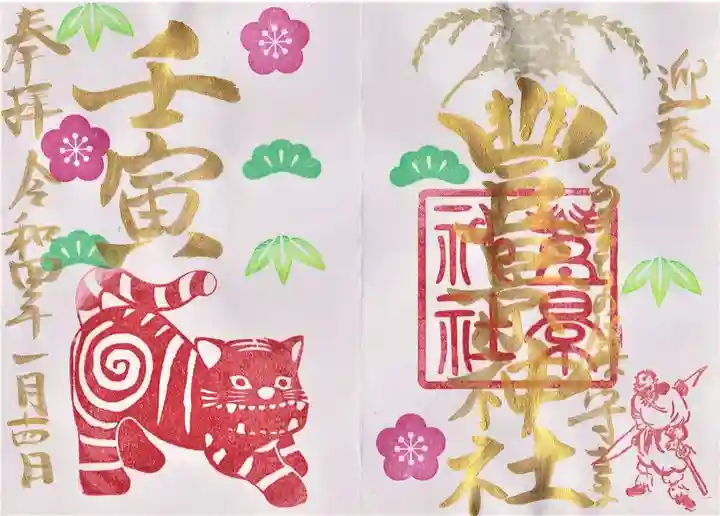 迎春
豊景神社
豊景
神社
壬寅
奉拝 令和四年一月十四日